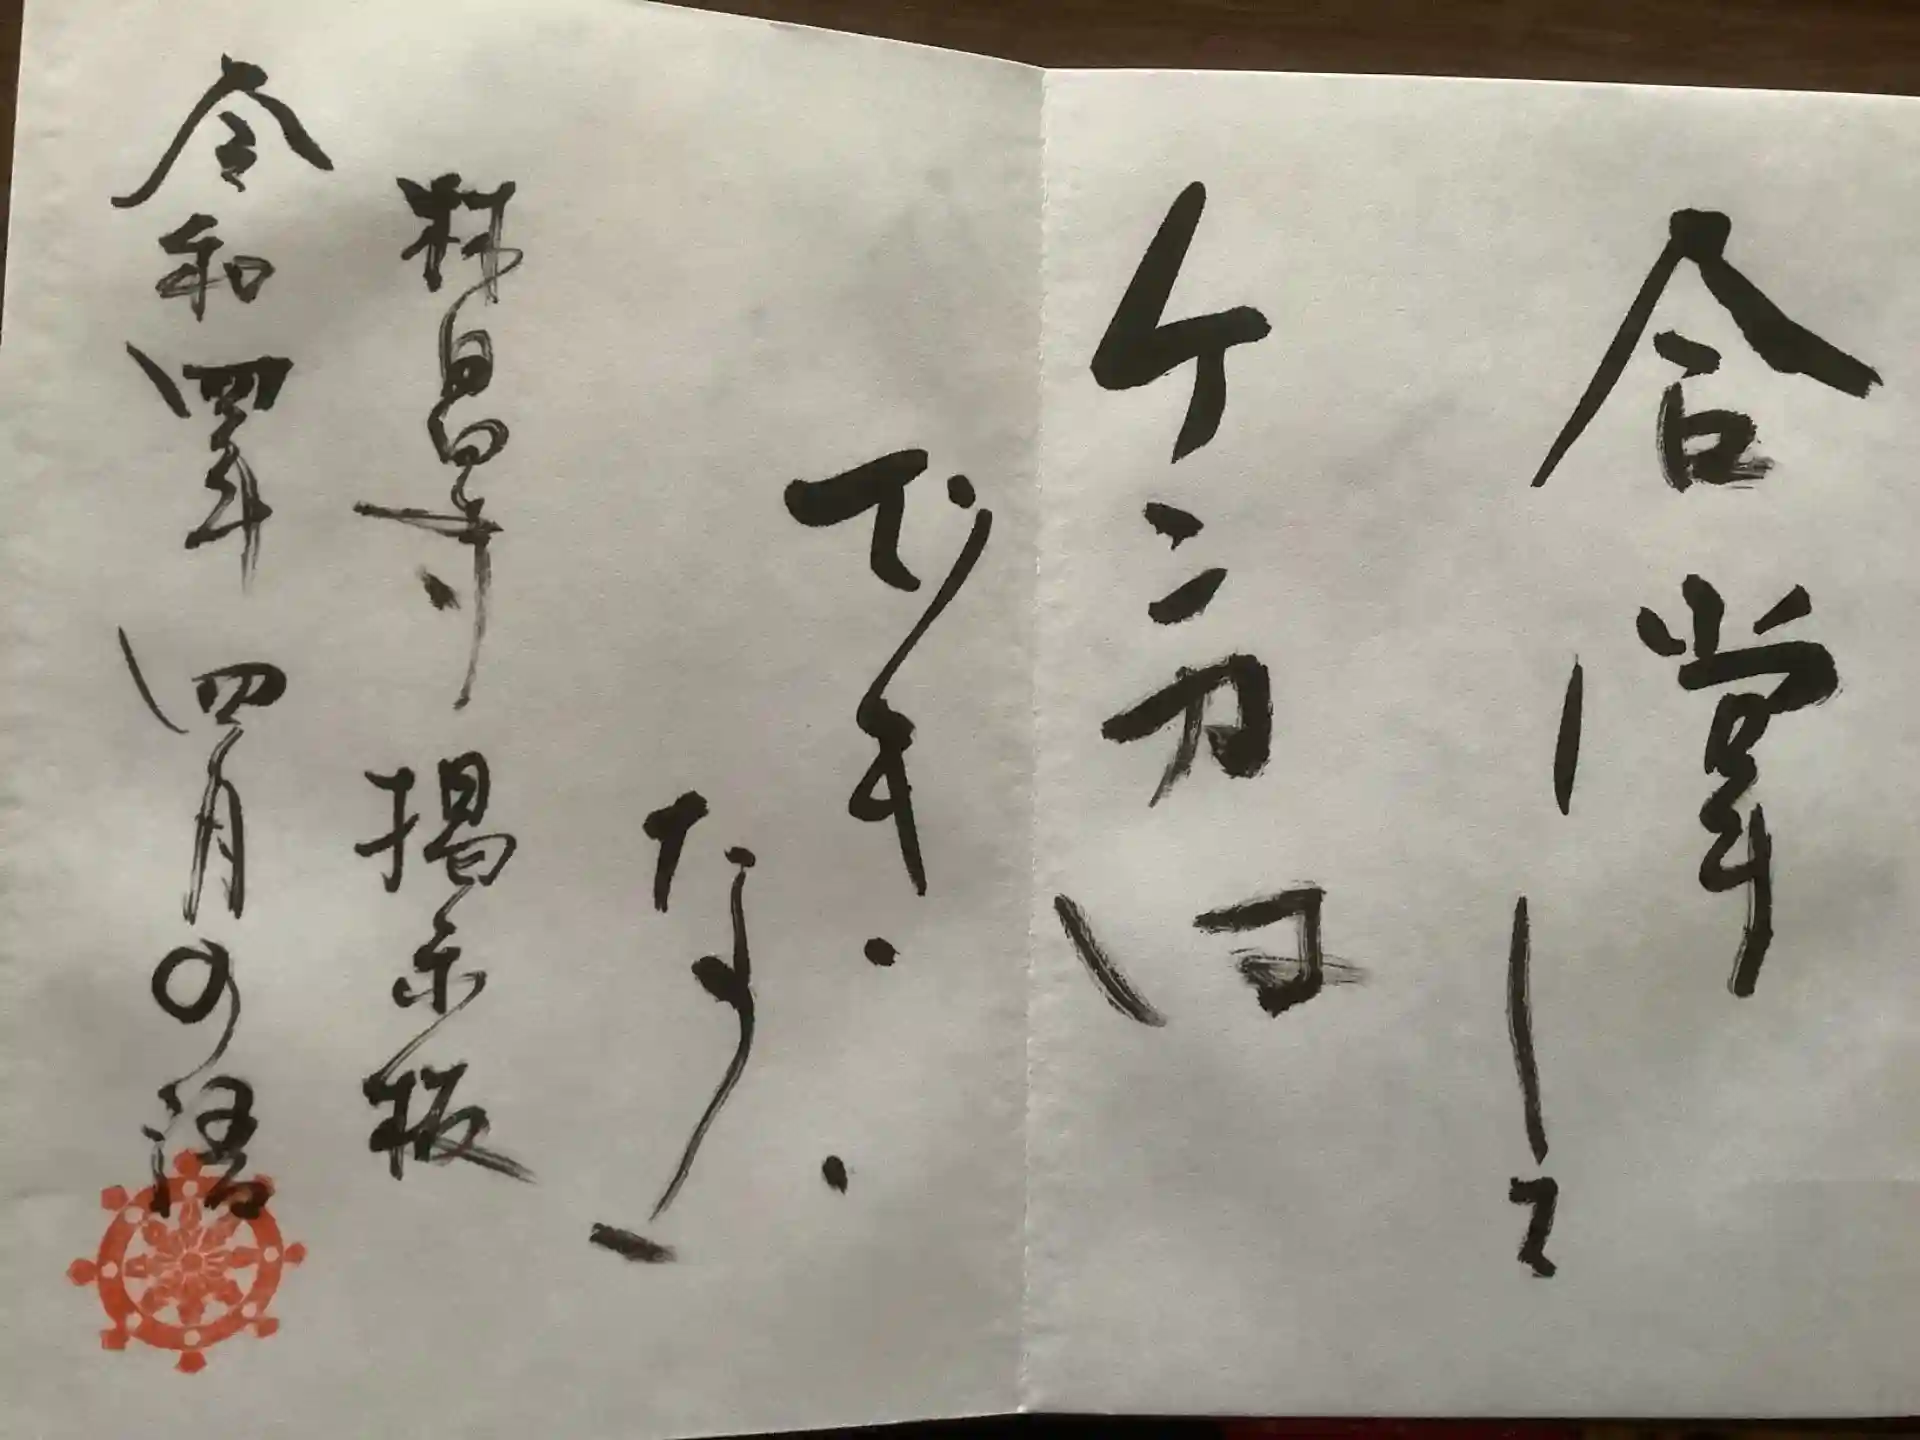 合掌して
ケンカは
できない
林昌寺 掲示板
令和四年 四月の語